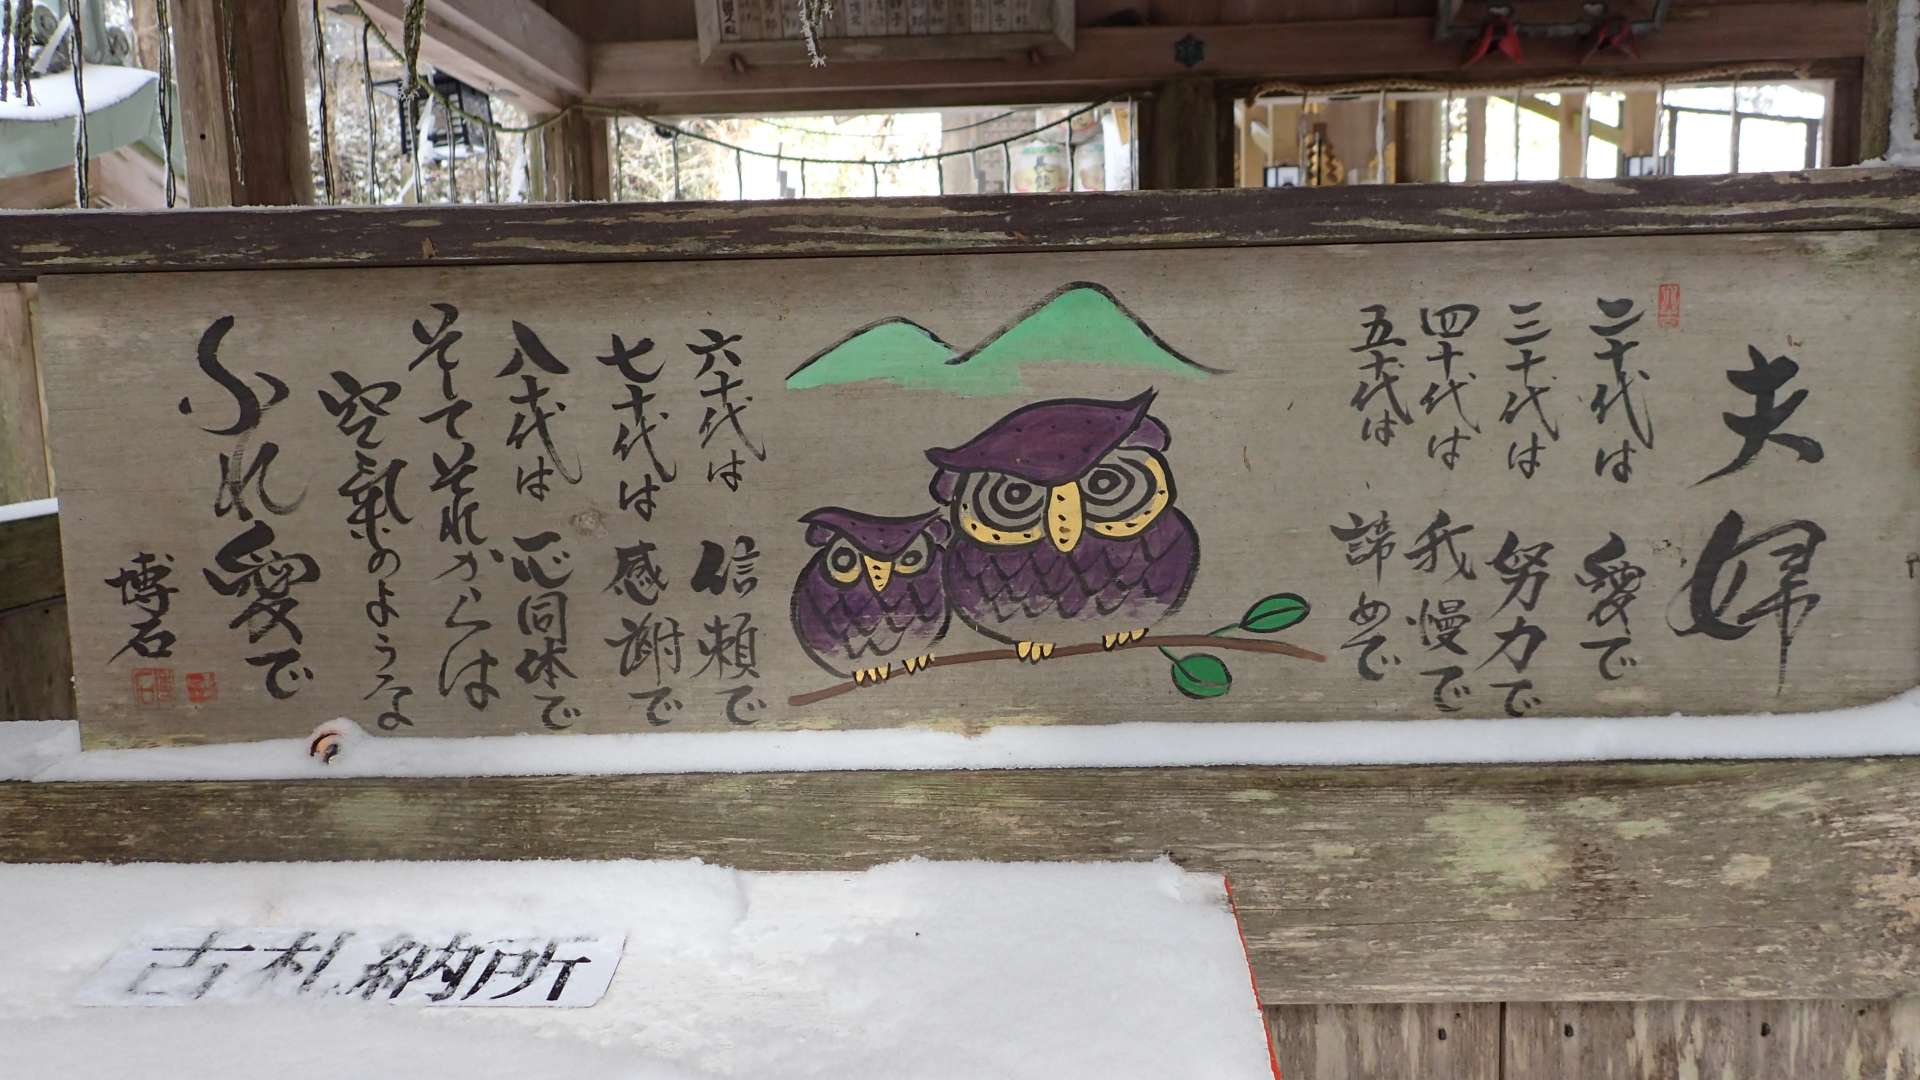 夫婦
二十代は 愛で
三十代は 努力で
四十代は 我慢で
五十代は 諦めで
六十代は 信頼で
七十代は 感謝で
八十代は 一心同体で
そしてそれからは
空氣のような
ふれ愛で
博石
古札納所